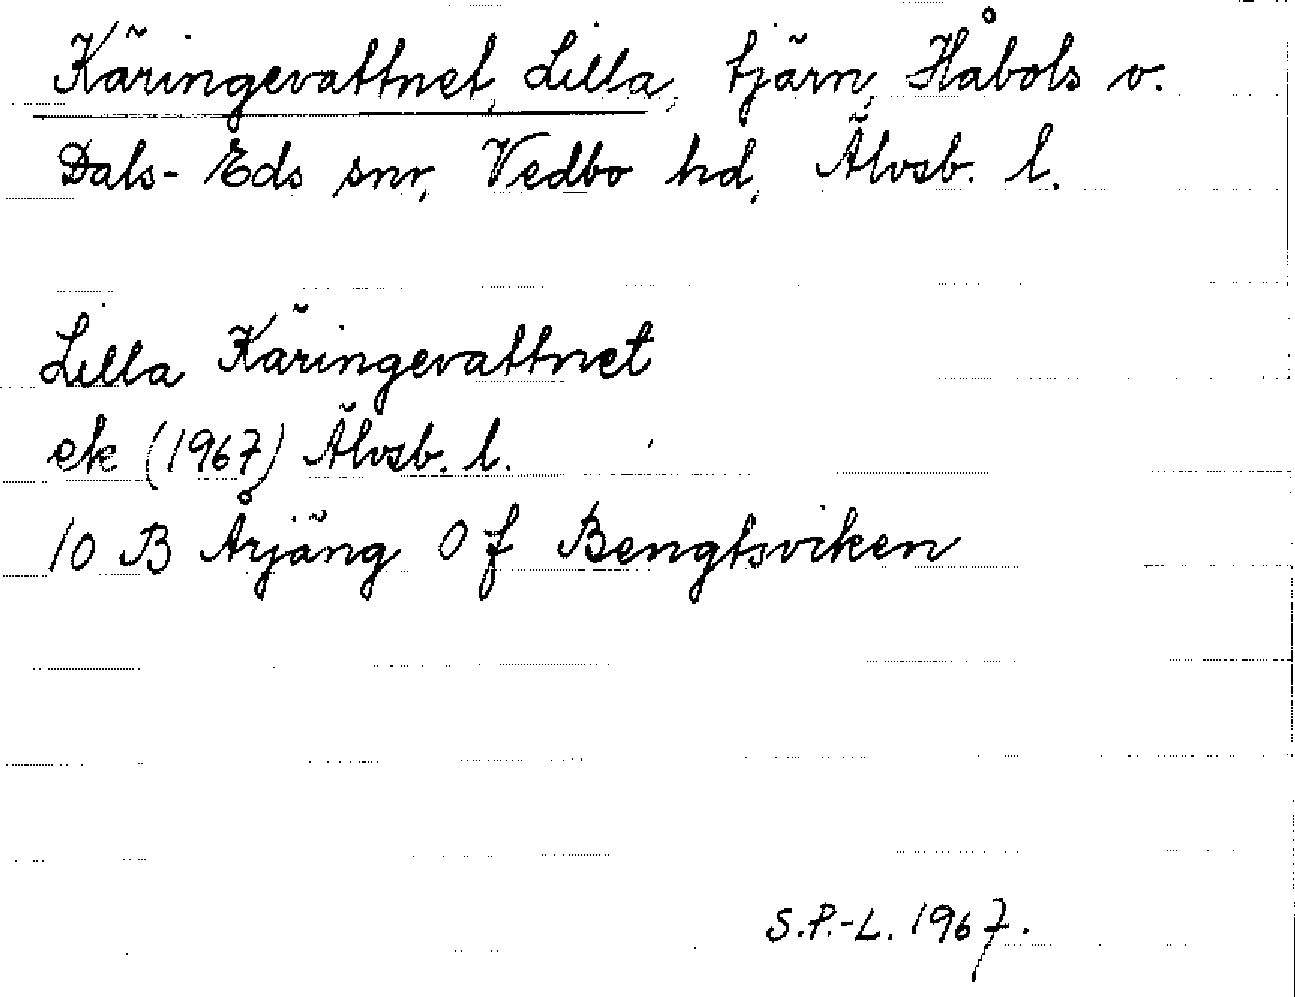 Käringevattnet, Lilla, tjärn, Håbols o.
Dals-Eds snr, Vedbo hd, Älvsb. l.
Lilla Käringevattnet
ek (1967) Älvsb. l.
10 B Årjäng 0 f Bengtsviken
S.P.-L. 1967.